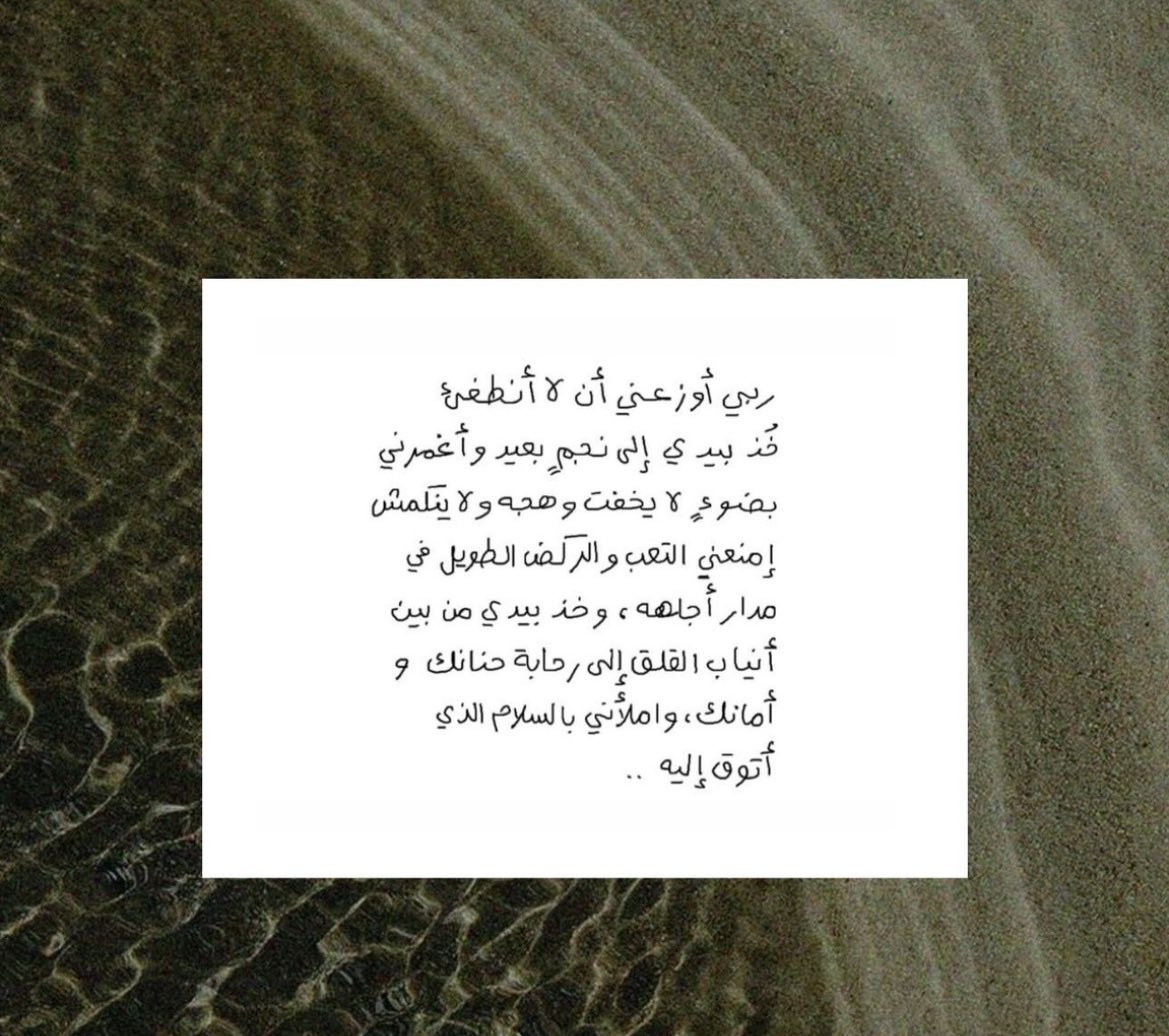 ربي أوزعني أن لا أنطفئ
خُذ بيدي إلى نجمٍ بعيد وأغمرني
بضوءٍ لا يخفت وهجه ولا ينكمش
إمنعني التعب والركض الطويل في
مدار أجلهه، وخذ بيدي من بين
أنياب القلق إلى رحابة حنانك و
أمانك، واملأني بالسلام الذي
أتوق إليه ..